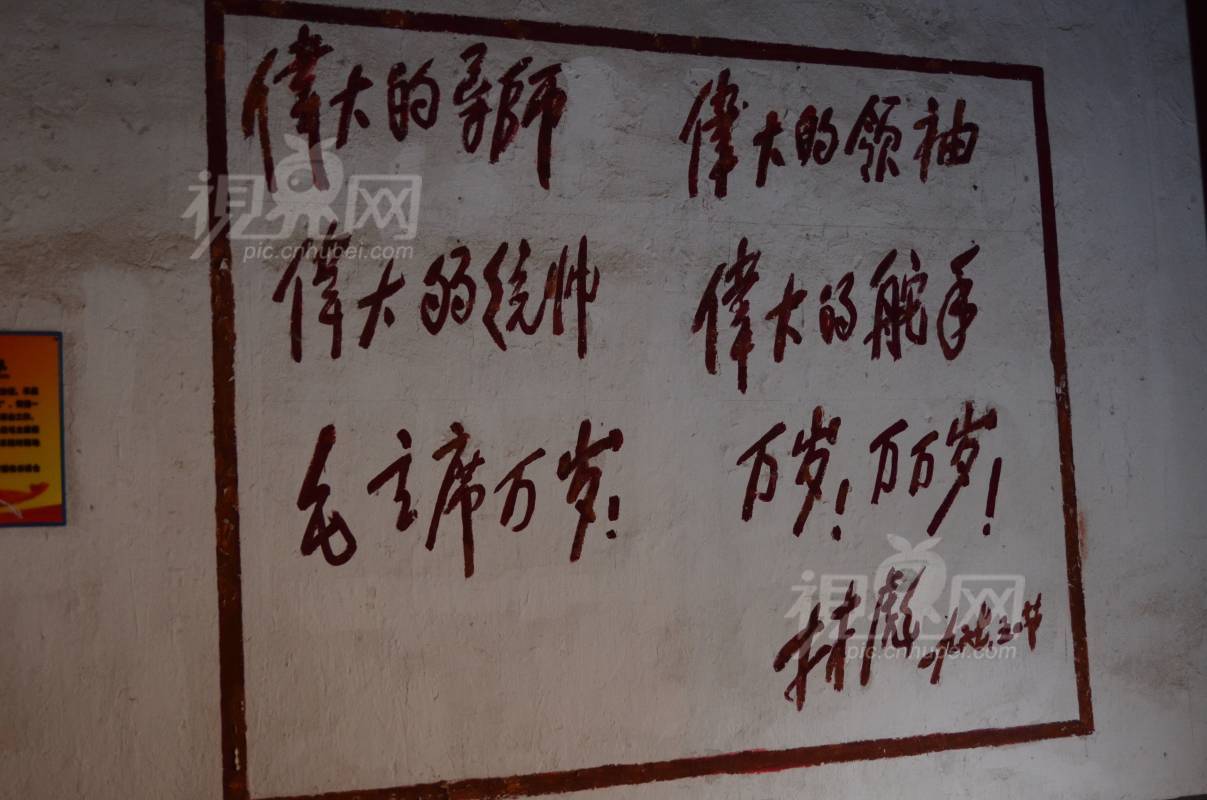 偉大的导师 偉大的领袖
偉大的统帅 偉大的舵手
毛主席万岁! 万岁!万万岁!
林彪
視界网
pic.cnhubei.com
視界网
pic.cnhubei.com